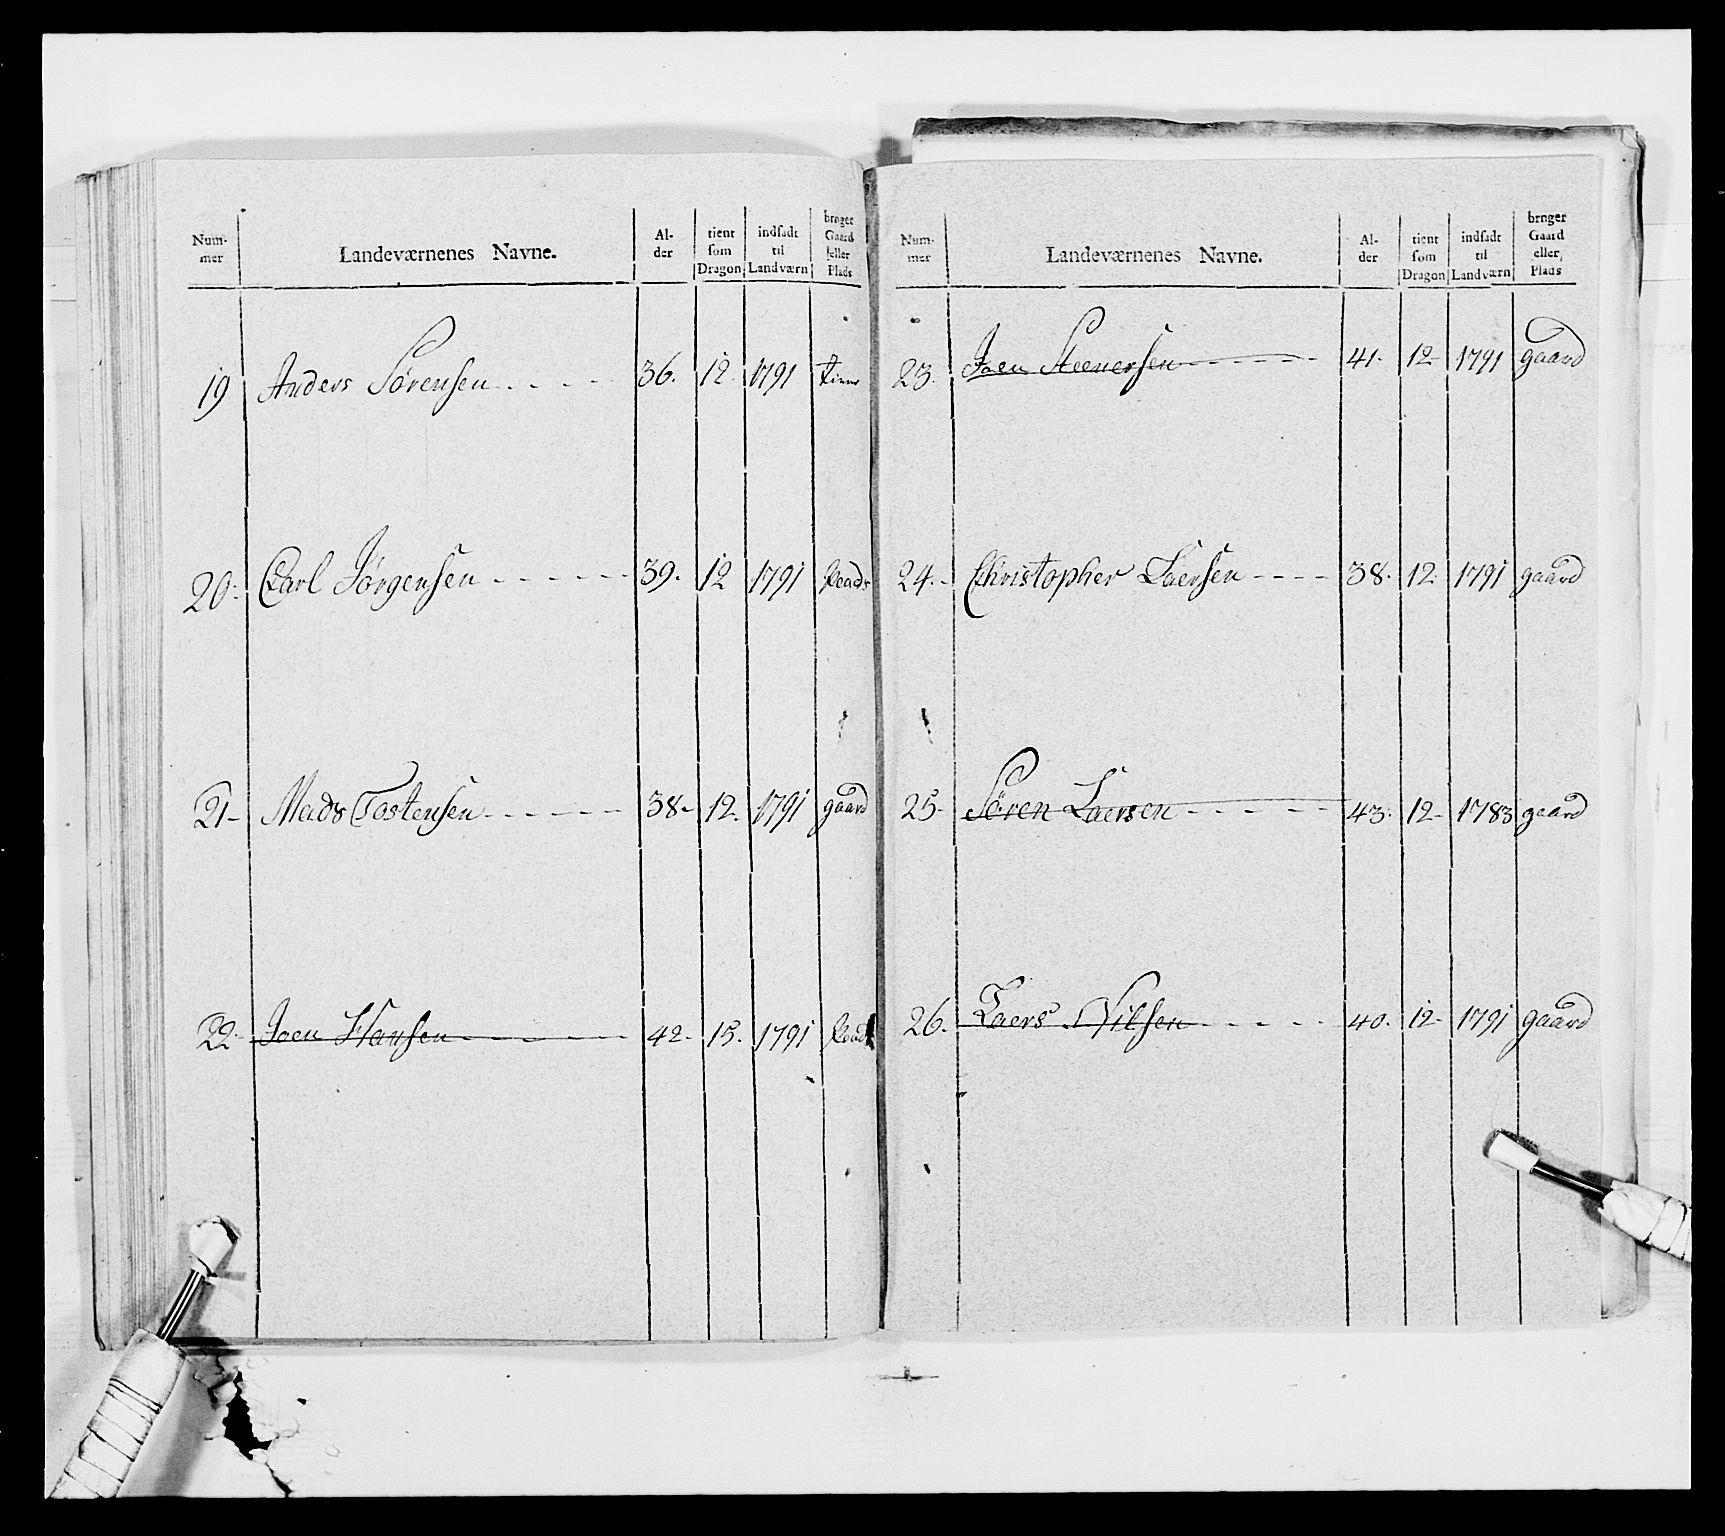 Num-
mer
Landeværnenes Navne.
Al-
der
tient
som
Dragon
indsadt
til
Landværn
bruger
Gaard
eller
Plads
19 Anders Sörensen 36. 12. 1791
20. Carl Jörgensen 39. 12 1791 Plads
21- Mads Tostensen 38- 12. 1791 gaard
22. Joen Hansen 42. 15. 1791
Num-
mer
Landeværnenes Navne.
Al-
der
tient
som
Dragon
indsadt
til
Landværn
bruger
Gaard
eller
Plads
23. Joen Steenersen 41. 12 1791 gaard
24. Christopher Laersen 38. 12. 1791 gaard
25- Sören Laersen 43. 12- 1783 gaard
26. Laers Nilsen 40. 12- 1791 gaard